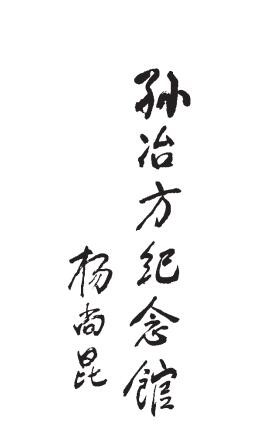 孙冶方纪念馆
杨尚昆